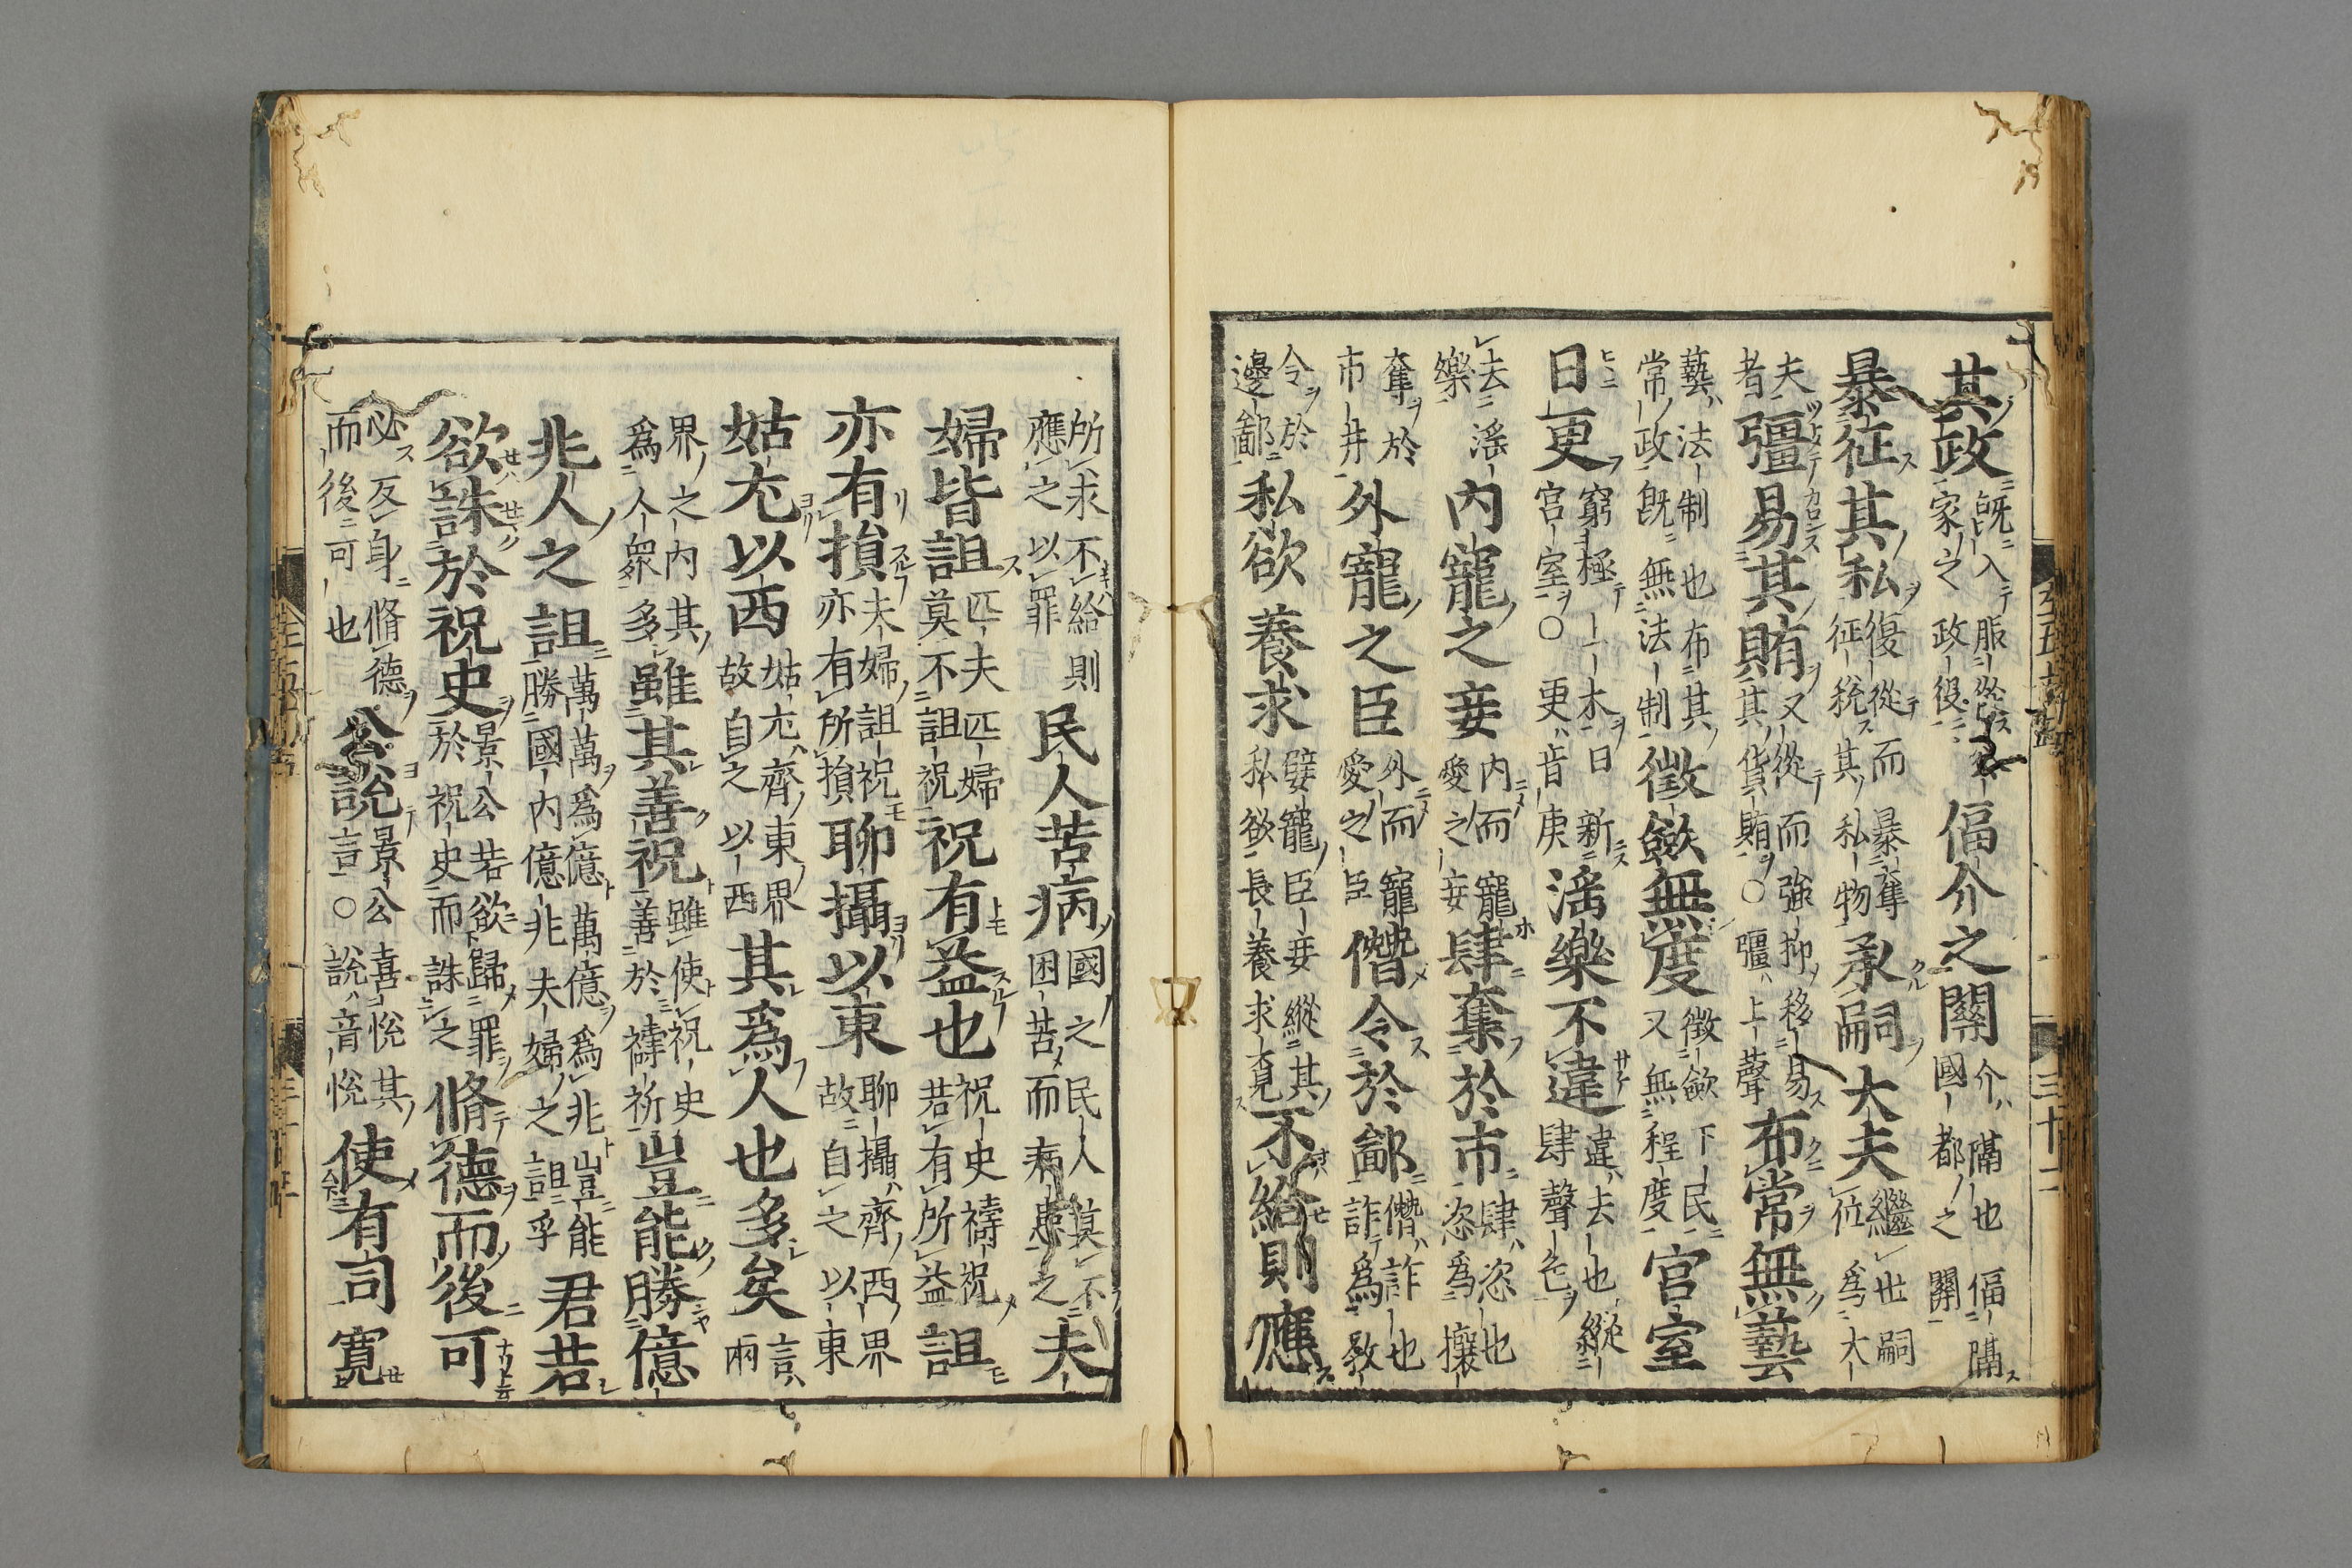 其政既入服從家之政役偪介之關介隔也偪隔國都之關
暴征其私復從而暴奪征稅其私物承嗣大夫繼世嗣位爲大
夫者彊易其賄又從而強抑移易其貨賄○彊上聲布常無藝
藝法制也布其常政既無法制徵斂無度徵斂下民又無程度宮室
日更窮極土木日新宮室○更音庚淫樂不違違去也縱肆聲色
去淫樂內寵之妾內而寵愛之妾肆奪於市肆恣也恣爲攘
奪於市井外寵之臣外而寵愛之臣僭令於鄙僭詐也詐爲敎
令於邊鄙私欲養求嬖寵臣妾縱其私欲長養求覓不給則應
所求不給則應之以罪民人苦病國之民人莫不困苦而病患之夫
婦皆詛匹夫匹婦莫不詛祝祝有益也祝史禱祝若有所益詛
亦有損夫婦詛祝亦有所損聊攝以東聊攝齊西界故自之以東
姑尤以西姑尤齊東界故自之以西其爲人也多矣言兩
界之內其爲人衆多雖其善祝雖使祝史善於禱祈豈能勝億
兆人之詛萬萬爲億萬億爲兆豈能勝國內億兆夫婦之詛乎君若
欲誅於祝史景公若欲歸罪於祝史而誅之脩德而後可
必反身脩德而後可也公說景公喜悅其言○說音悅使有司寬